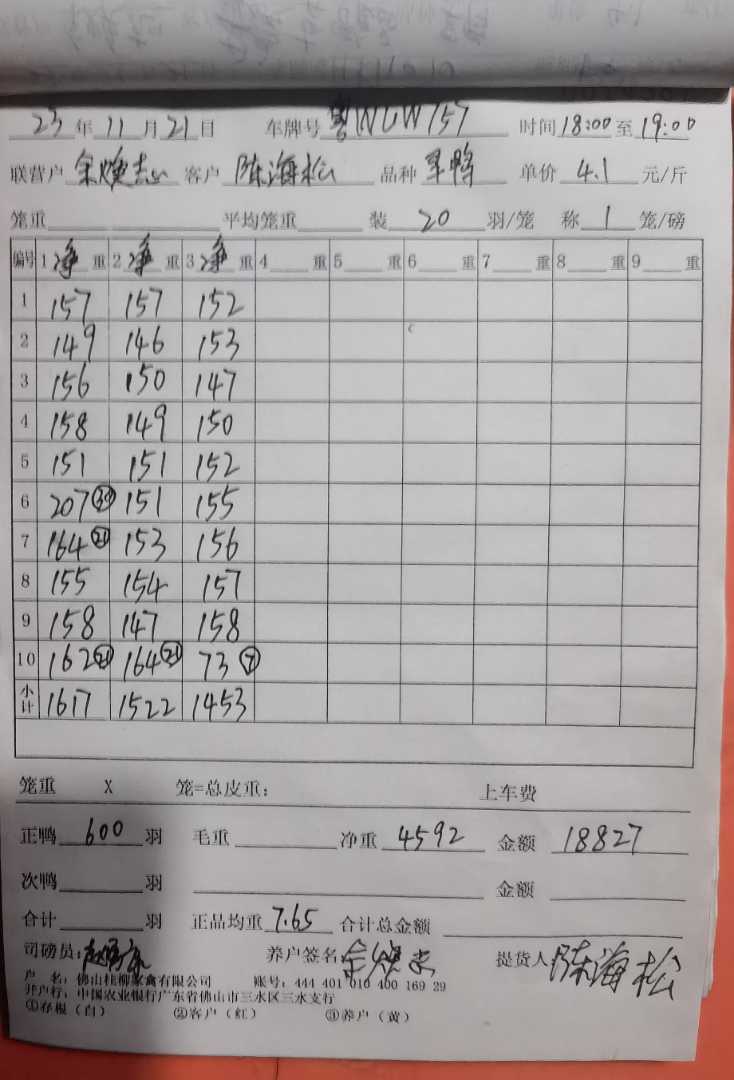 23年11月21日 车牌号 粤WLW757 时间18:00至19:00
联营户 余焕志 客户 陈海松 品种 单价 4.1 元/斤
笼重 平均笼重 装 20 羽/笼 称 1 笼/磅
编号 1净重 2净重 3净重 4重 5重 6重 7重 8重 9重
1 157 157 152
2 149 146 153
3 156 150 147
4 158 149 150
5 151 151 152
6 207 151 155
7 164㉑ 153 156
8 155 154 157
9 158 147 158
10 162㉑ 164㉑ 73
小计 1617 1522 1453
笼重 X 笼=总皮重: 上车费
正鸭 600 羽 毛重 净重 4592 金额 18827
次鸭 羽 金额
合计 羽 正品均重 7.65 合计总金额
司磅员: 养户签名 余焕志 提货人 陈海松
户 名: 佛山桂柳家禽有限公司 账号: 444 401 010 400 169 29
开户行: 中国农业银行广东省佛山市三水区三水支行
①存根(白) ②客户(红) ③养户(黄)